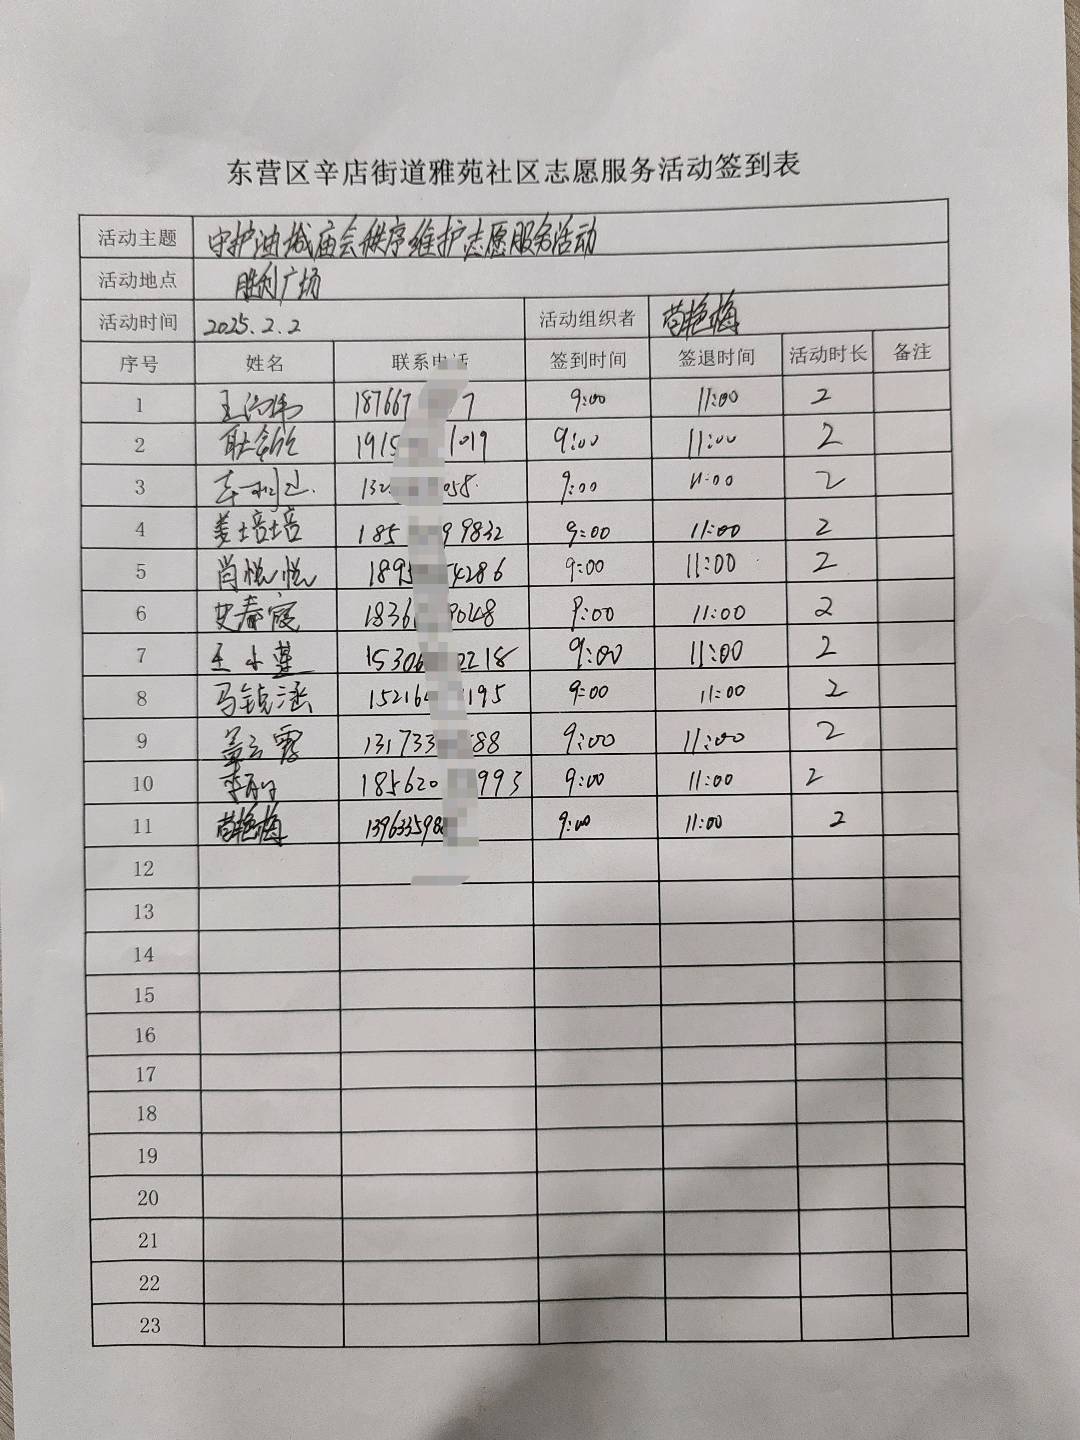 东营区辛店街道雅苑社区志愿服务活动签到表
活动主题 守护油城庙会秩序维护志愿服务活动
活动地点 胜利广场
活动时间 2025.2.2 活动组织者 苟艳梅
序号 姓名 联系电话 签到时间 签退时间 活动时长 备注
1 187667 7 9:00 11:00 2
2 1915 1019 9:00 11:00 2
3 132 058 9:00 11:00 2
4 姜培培 185 9832 9:00 11:00 2
5 肖悦悦 1895 4286 9:00 11:00 2
6 史春霞 1836 9048 9:00 11:00 2
7 王小莲 15306 2218 9:00 11:00 2
8 马锐涵 15216 195 9:00 11:00 2
9 盖云霞 131733 588 9:00 11:00 2
10 185620 993 9:00 11:00 2
11 苟艳梅 139633598 9:00 11:00 2
12
13
14
15
16
17
18
19
20
21
22
23